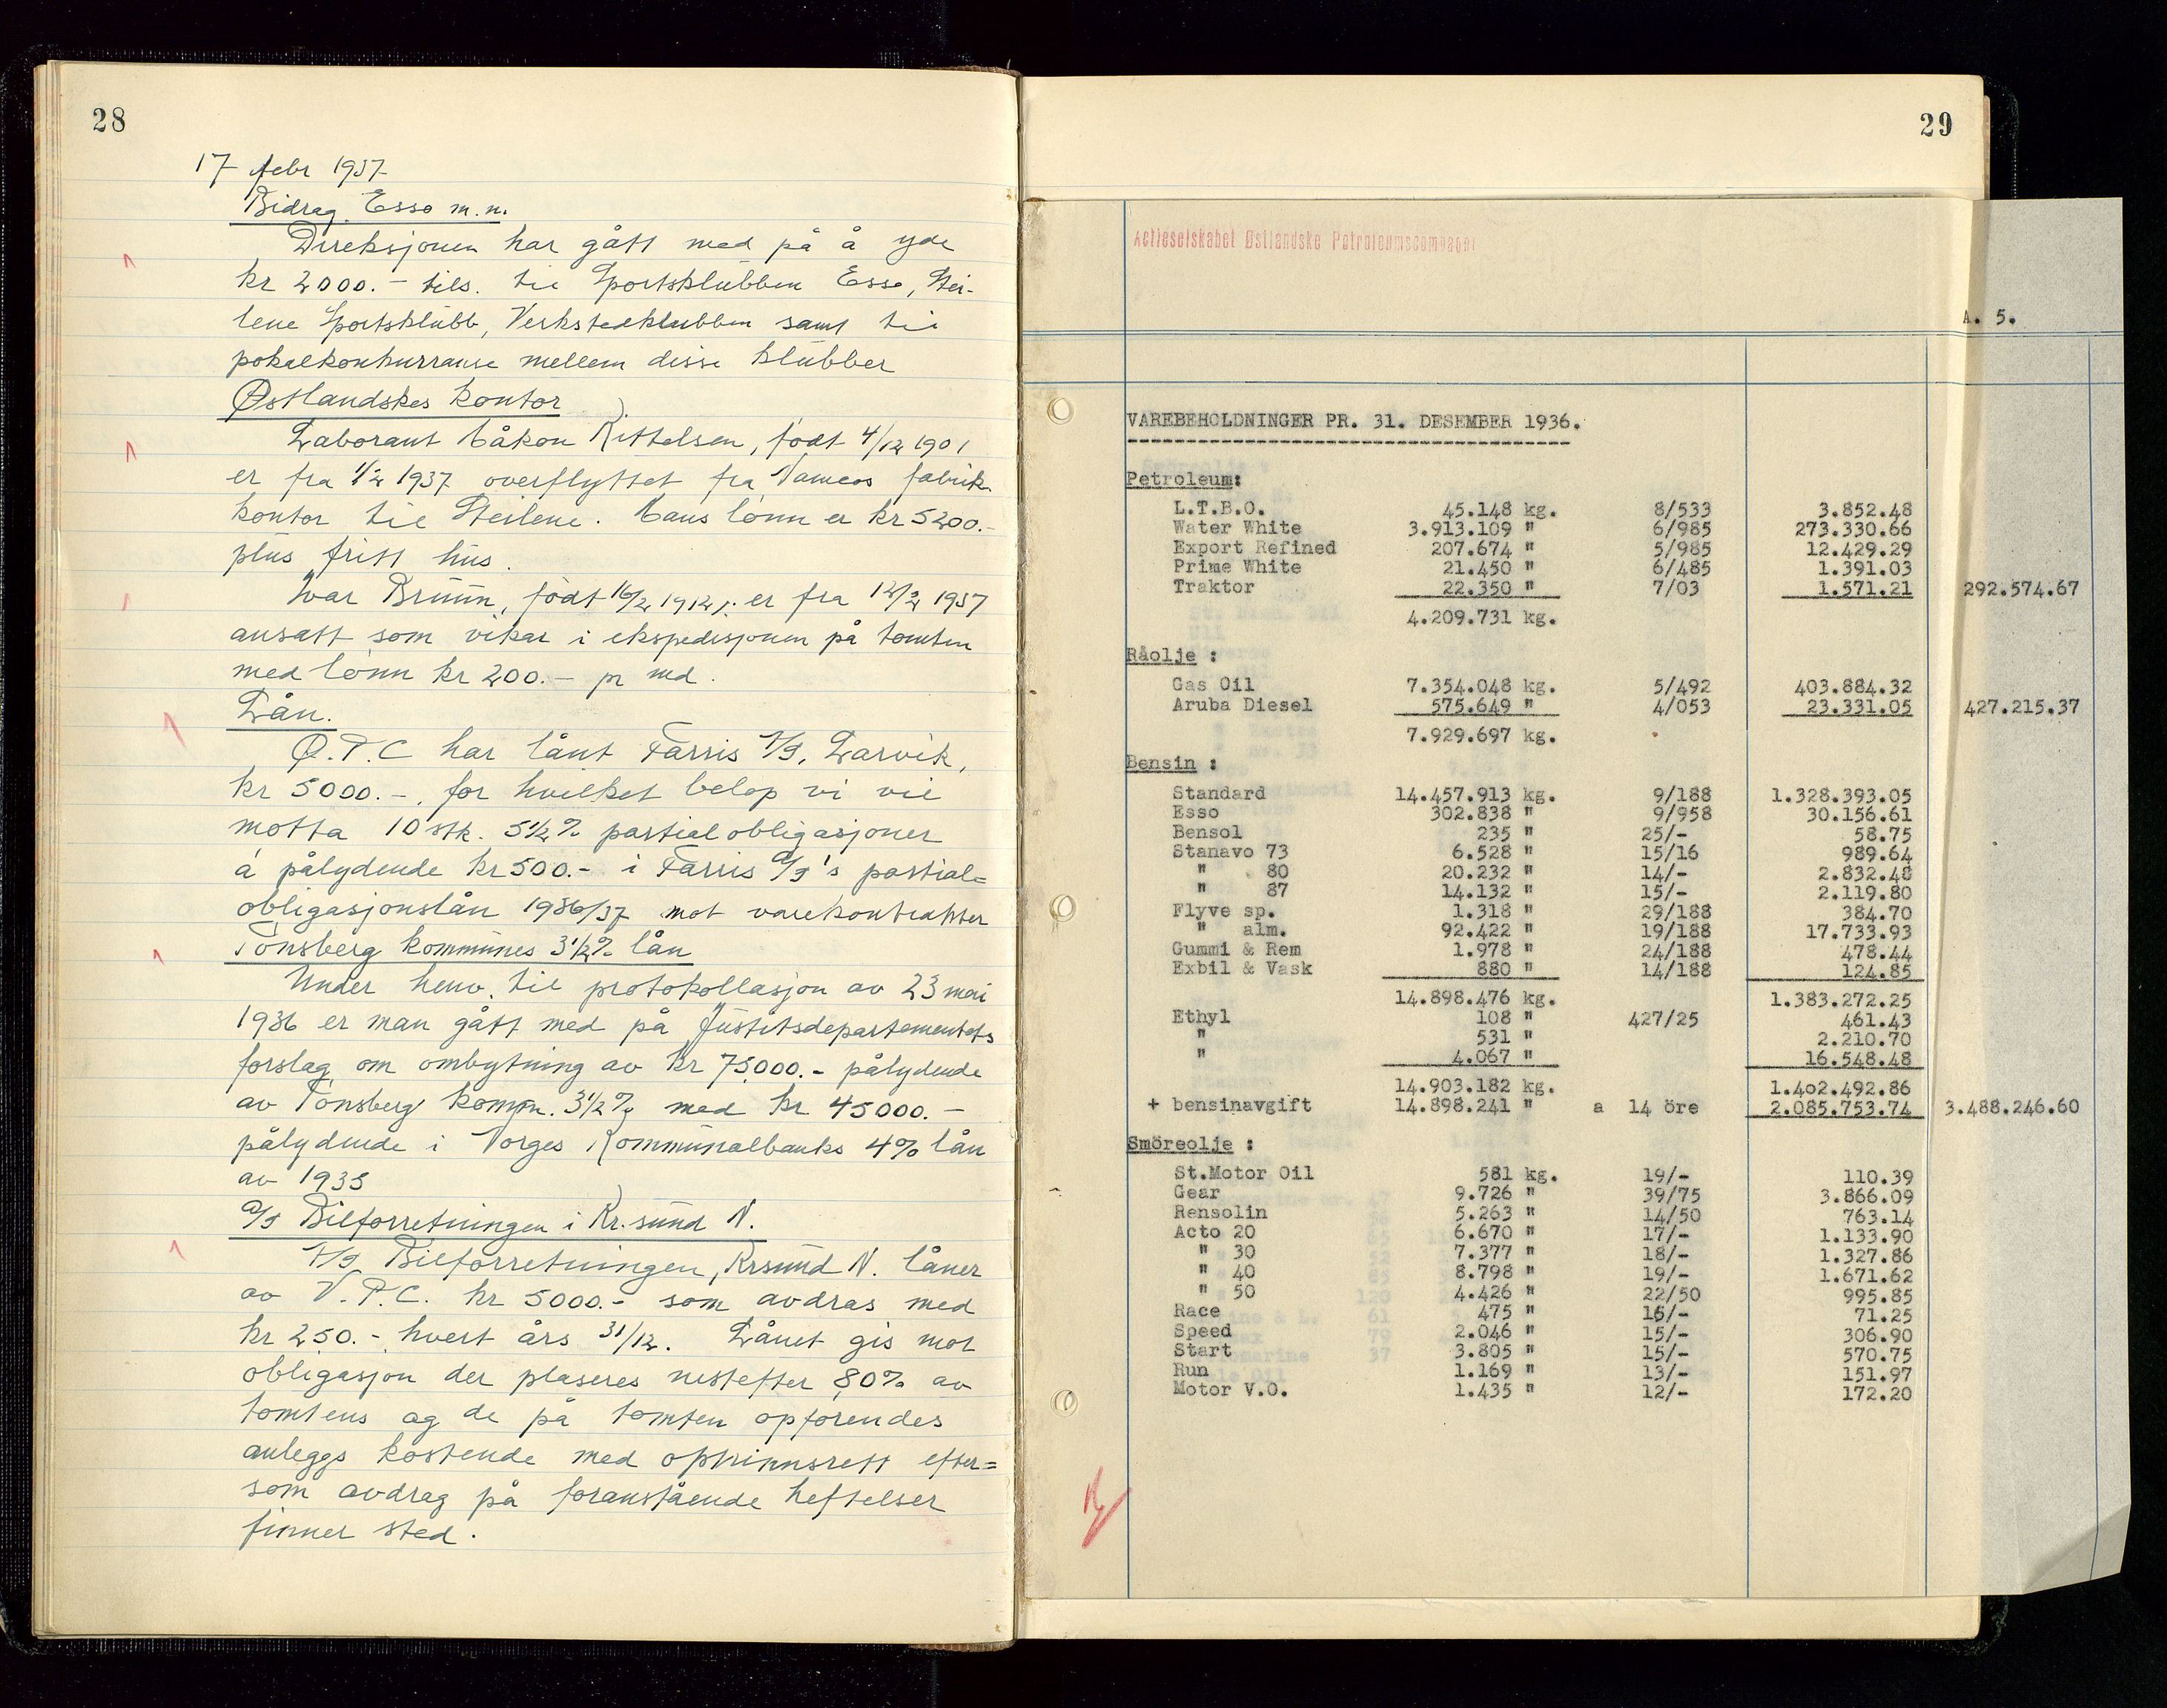 28
17 febr 1937
Bidrag. Esso m.n.
Direksjonen har gått med på å yde
kr 2000.- tils. til Sportsklubben Esso, Stei-
lene Sportsklubb, Verkstedklubben samt til
pokalkonkurranse mellem disse klubber
Østlandskes kontor
Laborant Håkon Kittelsen, født 4/12 1901
er fra 1/2 1937 overflyttet fra Vameos fabrik-
kontor til Steilene. Hans lønn er kr 5200.-
plus fritt hus.
Ivar Bruun, født 16/2 1912, er fra 12/2 1937
ansatt som vikar i ekspedisjonen på tomten
med lønn kr 200.- pr md.
Lån.
Ø.P.C har lånt Farris A/S, Larvik,
kr 5000.-, for hvilket beløp vi vil
motta 10 stk. 5½% partialobligasjoner
á pålydende kr 500.- i Farris A/S's partial=
obligasjonslån 1936/37 mot varekontrakter
Tønsberg kommunes 3½% lån
Under henv. til protokollasjon av 23 mai
1936 er man gått med på Justitsdepartementets
forslag om ombytning av kr 75000.- pålydende
av Tønsberg komm. 3½% med kr 45000.-
pålydende i Norges Kommunalbanks 4% lån
av 1935
A/S Bilforretningen i Kr.sund N.
A/S Bilforretningen, Krsund N. låner
av V.P.C. kr 5000.- som avdras med
kr 250.- hvert års 31/12. Lånet gis mot
obligasjon der plaseres nestefter 80% av
tomtens og de på tomten opførendes
anleggs kostende med oprinnsrett efter=
som avdrag på foranstående heftelser
finner sted.
29
Actieselskabet Østlandske Petroleumscompagni
A. 5.
VAREBEHOLDNINGER PR. 31. DESEMBER 1936.
Petroleum:
L.T.B.O. 45.148 kg. 8/533 3.852.48
Water White 3.913.109 " 6/985 273.330.66
Export Refined 207.674 " 5/985 12.429.29
Prime White 21.450 " 6/485 1.391.03
Traktor 22.350 " 7/03 1.571.21 292.574.67
4.209.731 kg.
Råolje :
Gas Oil 7.354.048 kg. 5/492 403.884.32
Aruba Diesel 575.649 " 4/053 23.331.05 427.215.37
7.929.697 kg.
Bensin :
Standard 14.457.913 kg. 9/188 1.328.393.05
Esso 302.838 " 9/958 30.156.61
Bensol 235 " 25/- 58.75
Stanavo 73 6.528 " 15/16 989.64
" 80 20.232 " 14/- 2.832.48
" 87 14.132 " 15/- 2.119.80
Flyve sp. 1.318 " 29/188 384.70
" alm. 92.422 " 19/188 17.733.93
Gummi & Rem 1.978 " 24/188 478.44
Exbil & Vask 880 " 14/188 124.85
14.898.476 kg. 1.383.272.25
Ethyl 108 " 427/25 461.43
" 531 " 2.210.70
" 4.067 " 16.548.48
14.903.182 kg. 1.402.492.86
+ bensinavgift 14.898.241 " a 14 öre 2.085.753.74 3.488.246.60
Smöreolje :
St.Motor Oil 581 kg. 19/- 110.39
Gear 9.726 " 39/75 3.866.09
Rensolin 5.263 " 14/50 763.14
Acto 20 6.670 " 17/- 1.133.90
" 30 7.377 " 18/- 1.327.86
" 40 8.798 " 19/- 1.671.62
" 50 4.426 " 22/50 995.85
Race 475 " 15/- 71.25
Speed 2.046 " 15/- 306.90
Start 3.805 " 15/- 570.75
Run 1.169 " 13/- 151.97
Motor V.O. 1.435 " 12/- 172.20